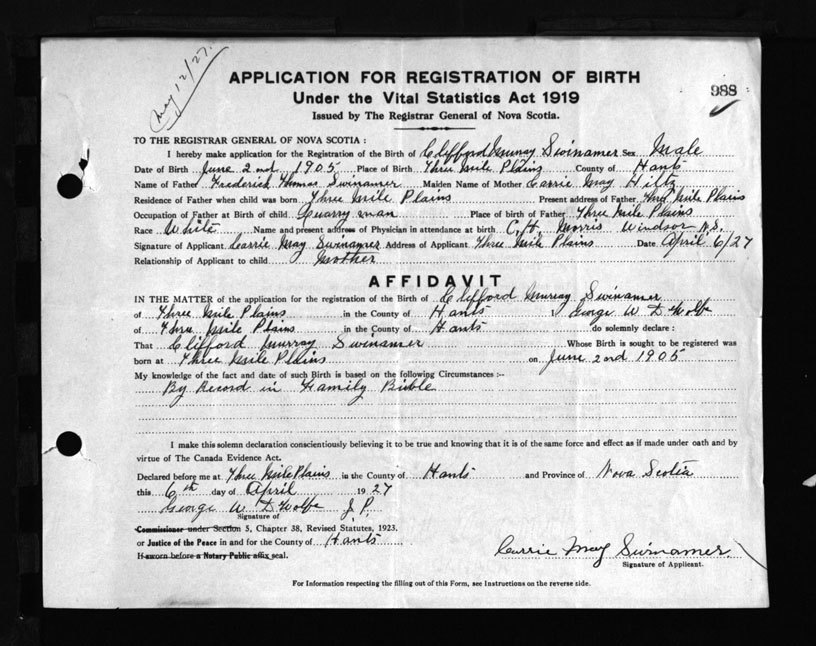 May 12/27.
APPLICATION FOR REGISTRATION OF BIRTH
988
Under the Vital Statistics Act 1919
Issued by The Registrar General of Nova Scotia.
TO THE REGISTRAR GENERAL OF NOVA SCOTIA :
I hereby make application for the Registration of the Birth of Clifford Murray Swinamer Sex Male
Date of Birth June 2nd 1905 Place of Birth Three Mile Plains County of Hants
Name of Father Frederick Thomas Swinamer Maiden Name of Mother Carrie May Hiltz
Residence of Father when child was born Three Mile Plains Present address of Father Three Mile Plains
Occupation of Father at Birth of child Quarry man Place of birth of Father Three Mile Plains
Race White Name and present address of Physician in attendance at birth C. H. Morris Windsor N.S.
Signature of Applicant Carrie May Swinamer Address of Applicant Three Mile Plains Date April 6/27
Relationship of Applicant to child Mother
AFFIDAVIT
IN THE MATTER of the application for the registration of the Birth of Clifford Murray Swinamer
of Three Mile Plains in the County of Hants I George W D Wolfe
of Three Mile Plains in the County of Hants do solemnly declare :
That Clifford Murray Swinamer Whose Birth is sought to be registered was
born at Three Mile Plains on June 2nd 1905
My knowledge of the fact and date of such Birth is based on the following Circumstances :--
By Record in Family Bible
I make this solemn declaration conscientiously believing it to be true and knowing that it is of the same force and effect as if made under oath and by
virtue of The Canada Evidence Act.
Declared before me at Three Mile Plains in the County of Hants and Province of Nova Scotia
this 6th day of April 1927
George W D Wolfe J P.
Signature of
Commissioner under Section 5, Chapter 38, Revised Statutes, 1923.
or Justice of the Peace in and for the County of Hants
If sworn before a Notary Public affix seal.
Carrie May Swinamer
Signature of Applicant.
For Information respecting the filling out of this Form, see Instructions on the reverse side.